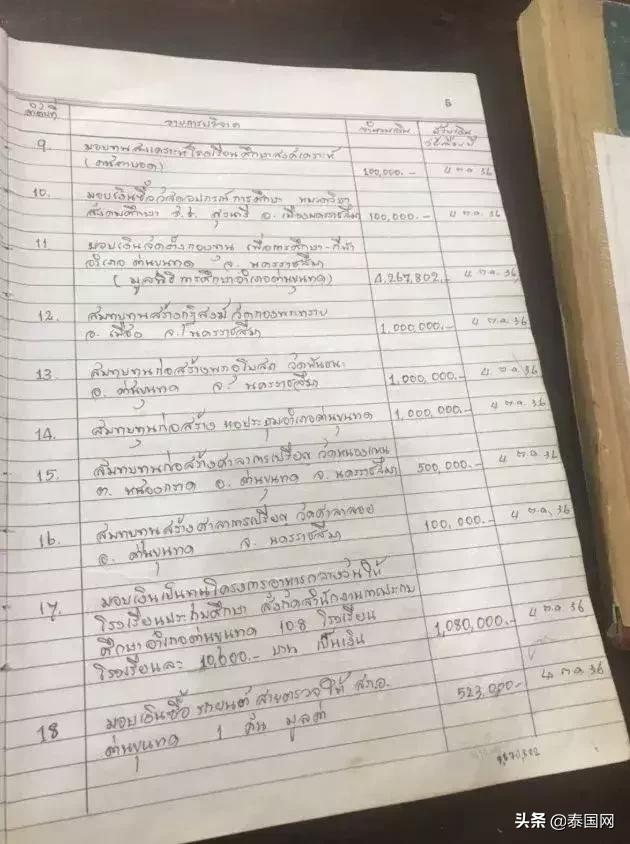 5
ลำดับที่ รายการบริจาค จำนวนเงิน
9 มอบทุนสงเคราะห์โรงเรียนศึกษาสงเคราะห์
(คนตาบอด) 100,000.- 4 ต.ค. 36
10. มอบเงินซื้อวัสดุอุปกรณ์การศึกษา หมวดวิชา
สังคมศึกษา ร.ร. สุรนารี อ. เมืองนครราชสีมา 100,000.- 4 ต.ค. 36
11 มอบเงินจัดตั้งกองทุน เพื่อการศึกษา-กีฬา
อำเภอ ด่านขุนทด จ. นครราชสีมา
(มูลนิธิการศึกษาอำเภอด่านขุนทด) 4,267,802.- 4 ต.ค. 36
12. สมทบทุนสร้างกุฏิสงฆ์
จ. นครราชสีมา 1,000,000.- 4 ต.ค. 36
13 สมทบทุนก่อสร้างพระอุโบสถ
อ. ด่านขุนทด จ. นครราชสีมา 1,000,000.- 4 ต.ค. 36
14. สมทบทุนก่อสร้าง หอประชุมอำเภอด่านขุนทด 1,000,000.- 4 ต.ค. 36
15. สมทบทุนก่อสร้างศาลาการเปรียญ วัดหนองแหน
ต. หนองกราด อ. ด่านขุนทด จ. นครราชสีมา 500,000.- 4 ต.ค. 36
16. สมทบทุนสร้างศาลาการเปรียญ วัดศาลาลอย
อ. ด่านขุนทด จ. นครราชสีมา 100,000.- 4 ต.ค. 36
17. มอบเงินเป็นทุนโครงการอาหารกลางวันให้
โรงเรียนประถมศึกษา สังกัดสำนักงานการประถม
ศึกษา อำเภอด่านขุนทด 108 โรงเรียน
โรงเรียนละ 10,000.- บาท เป็นเงิน 1,080,000.- 4 ต.ค. 36
18 มอบเงินซื้อ รถยนต์ สายตรวจให้ สภ.อ.
ด่านขุนทด 1 คัน มูลค่า 523,000.- 4 ต.ค. 36
头条 @泰国网